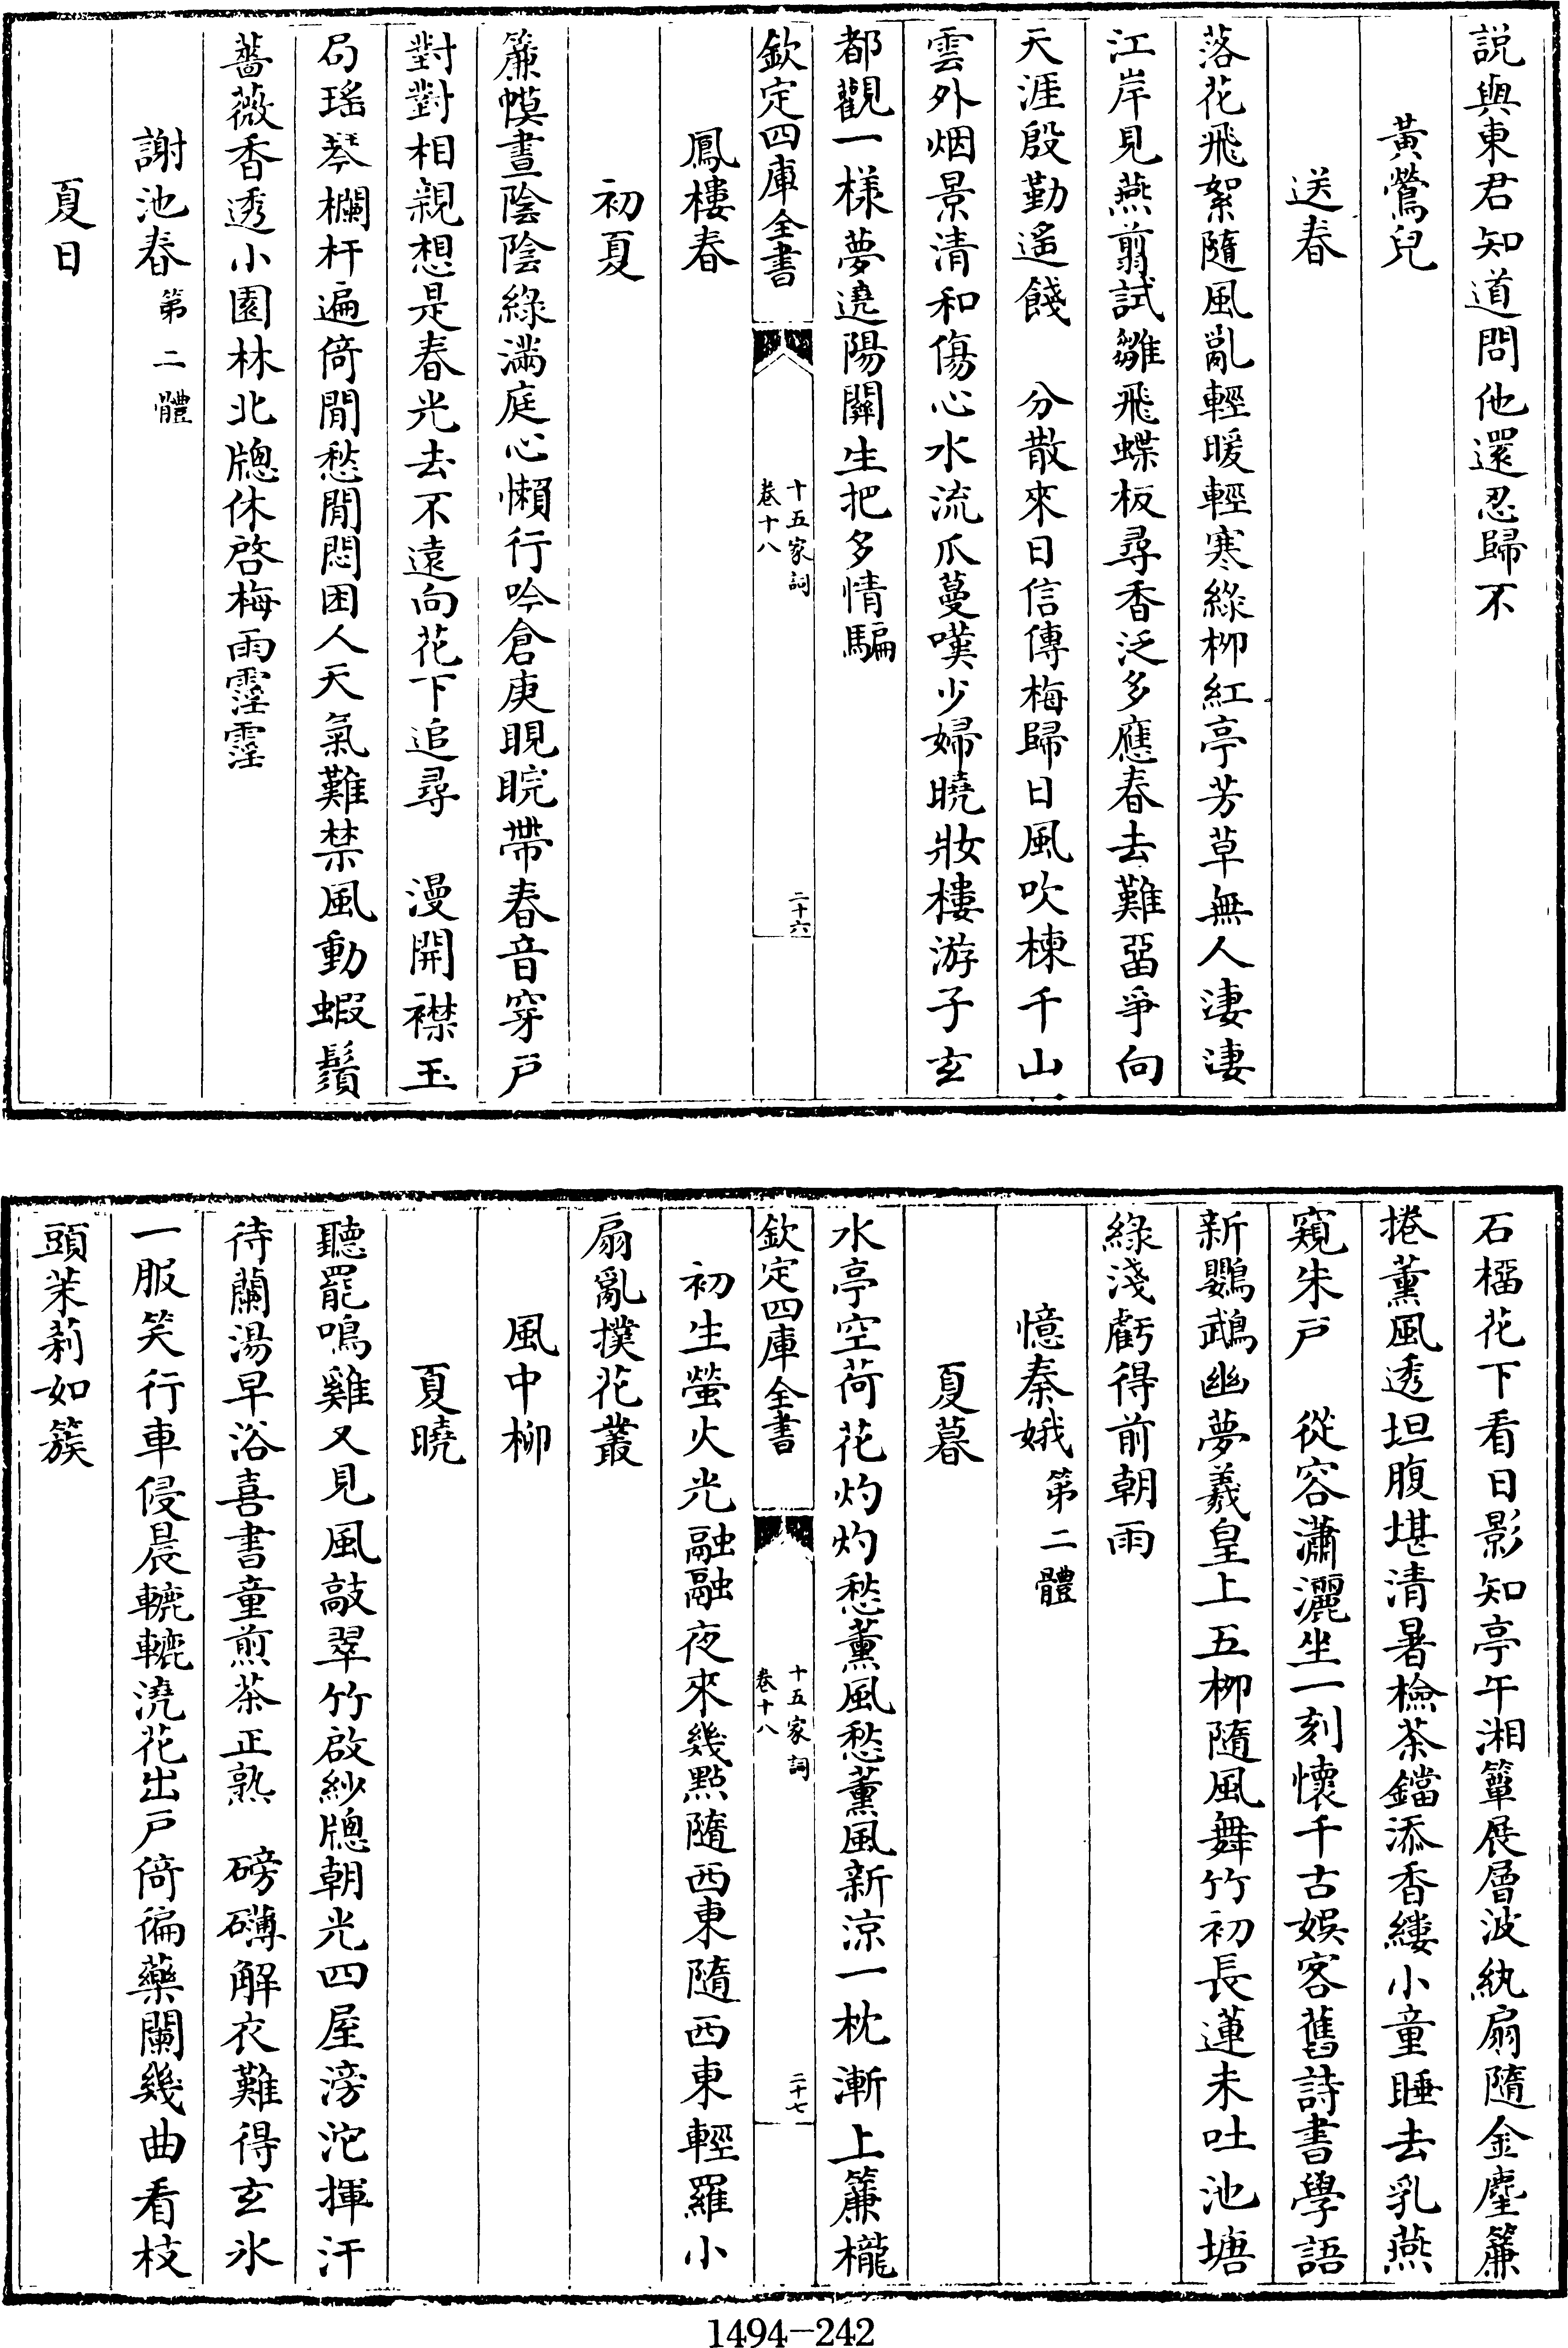 説與東君知道問他還忍歸不
黃鶯兒
送春
落花飛絮隨風亂輕暖輕寒綠柳紅亭芳草無人淒淒
江岸見燕翦試雛飛蝶板尋香泛多應春去難畱爭向
天涯殷勤遙餞　分散來日信傳梅歸日風吹楝千山
雲外烟景清和傷心水流瓜蔓嘆少婦曉妝樓游子玄
都觀一樣夢遶陽關生把多情騙
欽定四庫全書
十五家詞
卷十八
二十六
鳳樓春
初夏
簾幙晝陰陰綠滿庭心懶行吟倉庚睍睆帶春音穿戶
對對相親想是春光去不遠向花下追尋　漫開襟玉
局瑤琴欄杆遍倚閒愁閒悶困人天氣難禁風動蝦鬚
薔薇香透小園林北牕休啓梅雨霪霪
謝池春第二體
夏日
石榴花下看日影知亭午湘簟展層波紈扇隨金麈簾
捲薰風透坦腹堪清暑檢茶鐺添香縷小童睡去乳燕
窺朱戶　從容瀟灑坐一刻懷千古娛客舊詩書學語
新鸚鵡幽夢羲皇上五柳隨風舞竹初長蓮未吐池塘
綠淺虧得前朝雨
憶秦娥第二體
夏暮
水亭空荷花灼灼愁薰風愁薰風新涼一枕漸上簾櫳
欽定四庫全書
十五家詞
卷十八
二十七
初生螢火光融融夜來幾點隨西東隨西東輕羅小
扇亂撲花叢
風中柳
夏曉
聽罷鳴雞又見風敲翠竹啟紗牕朝光四屋滂沱揮汗
待蘭湯早浴喜書童煎茶正熟　磅礴解衣難得玄氷
一服笑行車侵晨轆轆澆花出戶倚徧藥闌幾曲看枝
頭茉莉如簇
1494-242